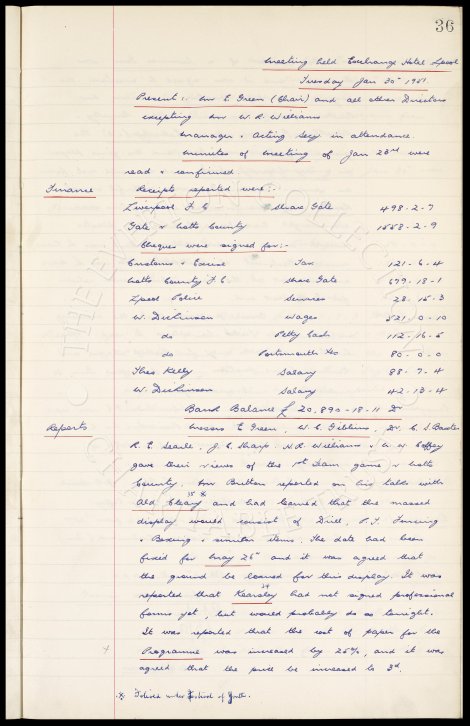 36
Meeting held Exchange Hotel Lpool
Tuesday Jan 30th 1951.
Present:- Mr E Green (Chair) and all other Directors
excepting Mr W. R. Williams
Manager & Acting Secy in attendance
Minutes of Meeting of Jan 23rd were
read & confirmed
Finance Receipts reported were:-
Liverpool F C Share Gate 498-2-7
Gate v Notts County 1558-2-9
Cheques were signed for:-
Customs & Excise Tax 121-6-4
Notts County F.C. Share Gate 679-18-1
Lpool Police Services 28-15-3
W. Dickinson Wages 521-0-10
do Petty Cash 112-16-5
do Portsmouth Exs 80-0-0
Theo Kelly Salary 88-7-4
W. Dickinson Salary 42-13-4
Bank Balance £20,890-18-11 Dr
Reports Messrs E Green, W. C. Gibbins, Dr. C. S. Baxter
R. E. Searle, J. C. Sharp, N. R. Williams & W
gave their views of the 1st Team game v Notts
County. Mr Britton reported on his talk with
Ald Cleary and had learned that the massed
display would consist of Drill, P.T. Fencing
& Boxing & similar items. The date had been
fixed for May 26th and it was agreed that
the ground be loaned for this display. It was
reported that Kearsley had not signed professional
forms yet, but would probably do so tonight.
It was reported that the cost of paper for the
Programme was increased by 25%, and it was
agreed that the price be increased to 3d.
under Festival of Youth.